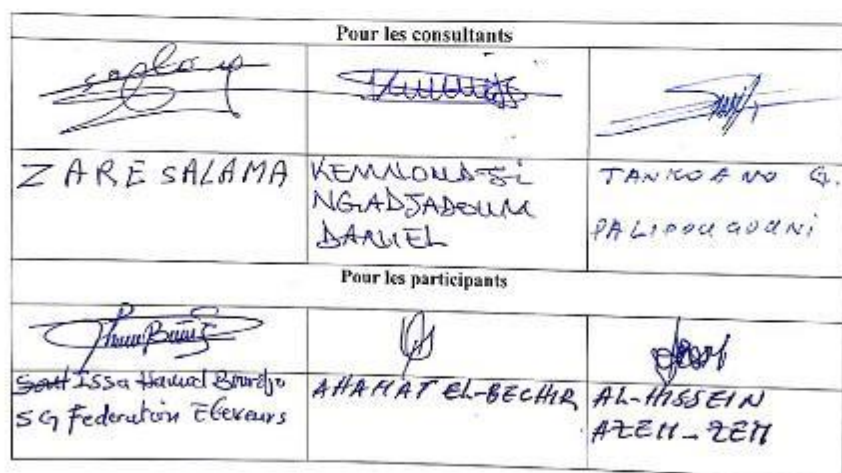 Pour les consultants
ZARE SALAMA
KEMNONDJI
NGADJADOUM
DANIEL
TANKOANO G.
PALIPOUGOUNI
Pour les participants
Issa Hamad Bourdjo
SG Federation Eleveurs
AHAMAT EL-BECHIR
AL-HISSEIN
AZEM-ZEM